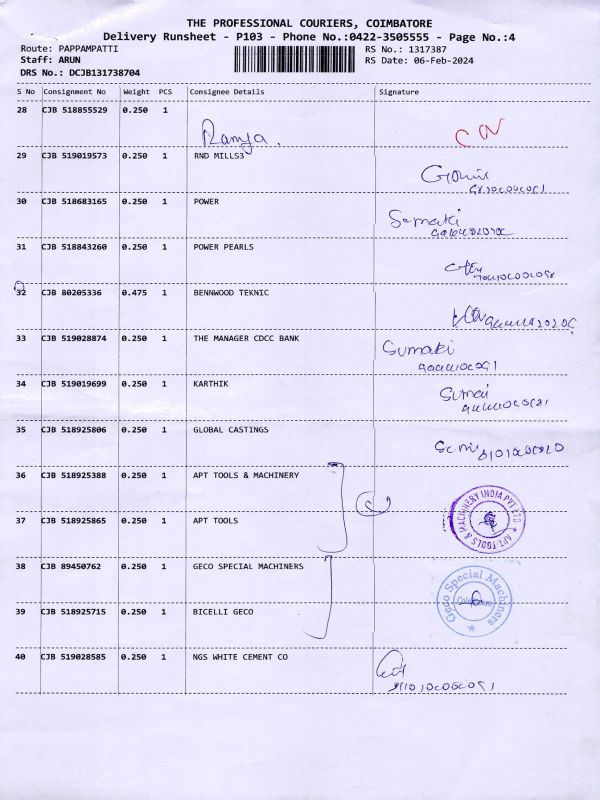 THE PROFESSIONAL COURIERS, COIMBATORE
Delivery Runsheet - P103 - Phone No.:0422-3505555 - Page No.:4
Route: PAPPAMPATTI RS No.: 1317387
Staff: ARUN RS Date: 06-Feb-2024
DRS No.: DCJB131738704
S No Consignment No Weight PCS Consignee Details Signature
28 CJB 518855529 0.250 1
Ramya
29 CJB 519019573 0.250 1 RND MILLS3
30 CJB 518683165 0.250 1 POWER
Sumaki
31 CJB 518843260 0.250 1 POWER PEARLS
32 CJB 80205336 0.475 1 BENNWOOD TEKNIC
33 CJB 519028874 0.250 1 THE MANAGER CDCC BANK
Sumaki
34 CJB 519019699 0.250 1 KARTHIK
35 CJB 518925806 0.250 1 GLOBAL CASTINGS
36 CJB 518925388 0.250 1 APT TOOLS & MACHINERY
APT TOOLS & MACHINERY INDIA PVT LTD
37 CJB 518925865 0.250 1 APT TOOLS
38 CJB 89450762 0.250 1 GECO SPECIAL MACHINERS
Geco Special Machiners
39 CJB 518925715 0.250 1 BICELLI GECO
40 CJB 519028585 0.250 1 NGS WHITE CEMENT CO